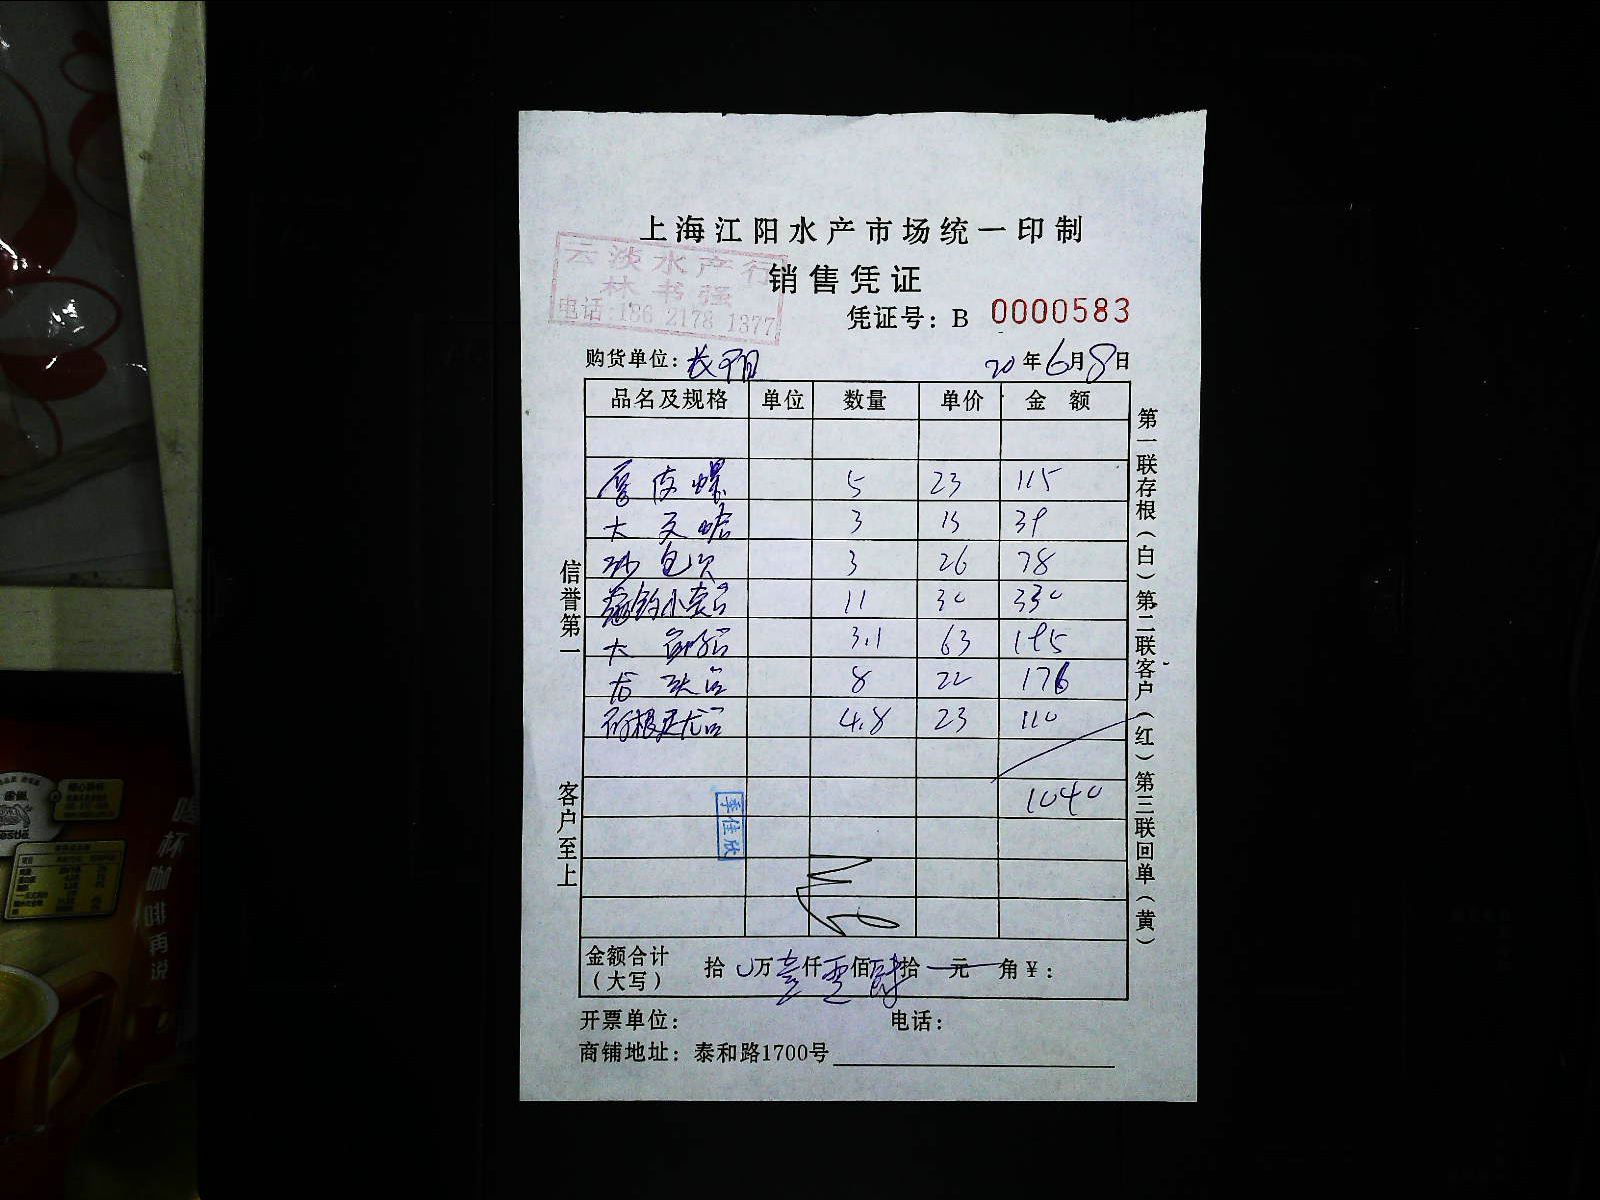 上海江阳水产市场统一印制
云淡水产行
林书强
电话:186 2178 1377
销售凭证
凭证号: B 0000583
购货单位: 长阳 20年6月8日
品名及规格 单位 数量 单价 金 额
厚皮螺 5 23 115
大文蛤 3 13 39
沙包贝 3 26 78
11 30 330
大 3.1 63 195
龙头 8 22 176
4.8 23 110
1040
季佳欣
金额合计(大写) 拾 万壹仟零佰肆拾 元 角¥:
开票单位: 电话:
商铺地址: 泰和路1700号
信誉第一
客户至上
第一联存根(白)第二联客户(红)第三联回单(黄)
喝杯咖啡再说